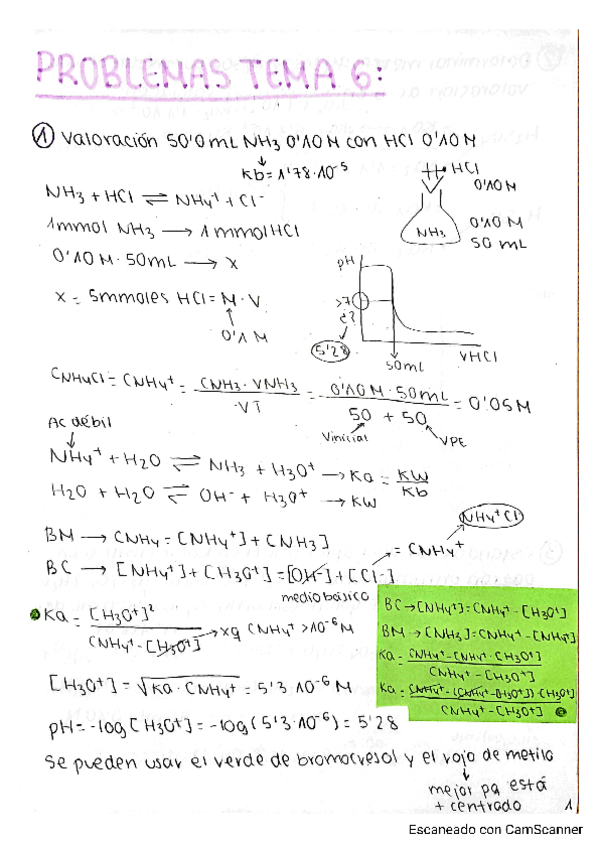 PROBLEMAS TEMA 6:
① Valoración 50'0mL NH3 0'10M con HCl 0'10M
Kb=1'78·10⁻⁵
NH3 + HCl ⇌ NH4⁺ + Cl⁻
1mmol NH3 → 1mmol HCl
0'10M·50mL → X
X = 5mmoles HCl = M·V
0'1M
HCl
0'10M
NH3
0'10M
50mL
pH
>7
¿?
5'28
50mL
VHCl
CNH4Cl = CNH4⁺ = CNH3·VNH3 / VT = 0'10M·50mL / 50 + 50 = 0'05M
Vinicial
VPE
Ac débil
NH4⁺ + H2O ⇌ NH3 + H3O⁺ → Ka = Kw / Kb
H2O + H2O ⇌ OH⁻ + H3O⁺ → Kw
NH4⁺Cl
BM → CNH4 = [NH4⁺] + [NH3]
BC → [NH4⁺] + [H3O⁺] = [OH⁻] + [Cl⁻]
= CNH4⁺
medio básico
Ka = [H3O⁺]² / CNH4⁺ - [H3O⁺] → xq CNH4⁺ >10⁻⁶M
BC → [NH4⁺] = CNH4⁺ - [H3O⁺]
BM → [NH3] = CNH4⁺ - [NH4⁺]
Ka = CNH4⁺ - [NH4⁺·[H3O⁺] / CNH4⁺ - [H3O⁺]
Ka = CNH4⁺ - (CNH4⁺ - [H3O⁺])·[H3O⁺] / CNH4⁺ - [H3O⁺]
[H3O⁺] = √Ka·CNH4⁺ = 5'3·10⁻⁶M
pH = -log[H3O⁺] = -log(5'3·10⁻⁶) = 5'28
Se pueden usar el verde de bromocresol y el rojo de metilo
mejor pq está
+ centrado
1
Escaneado con CamScanner